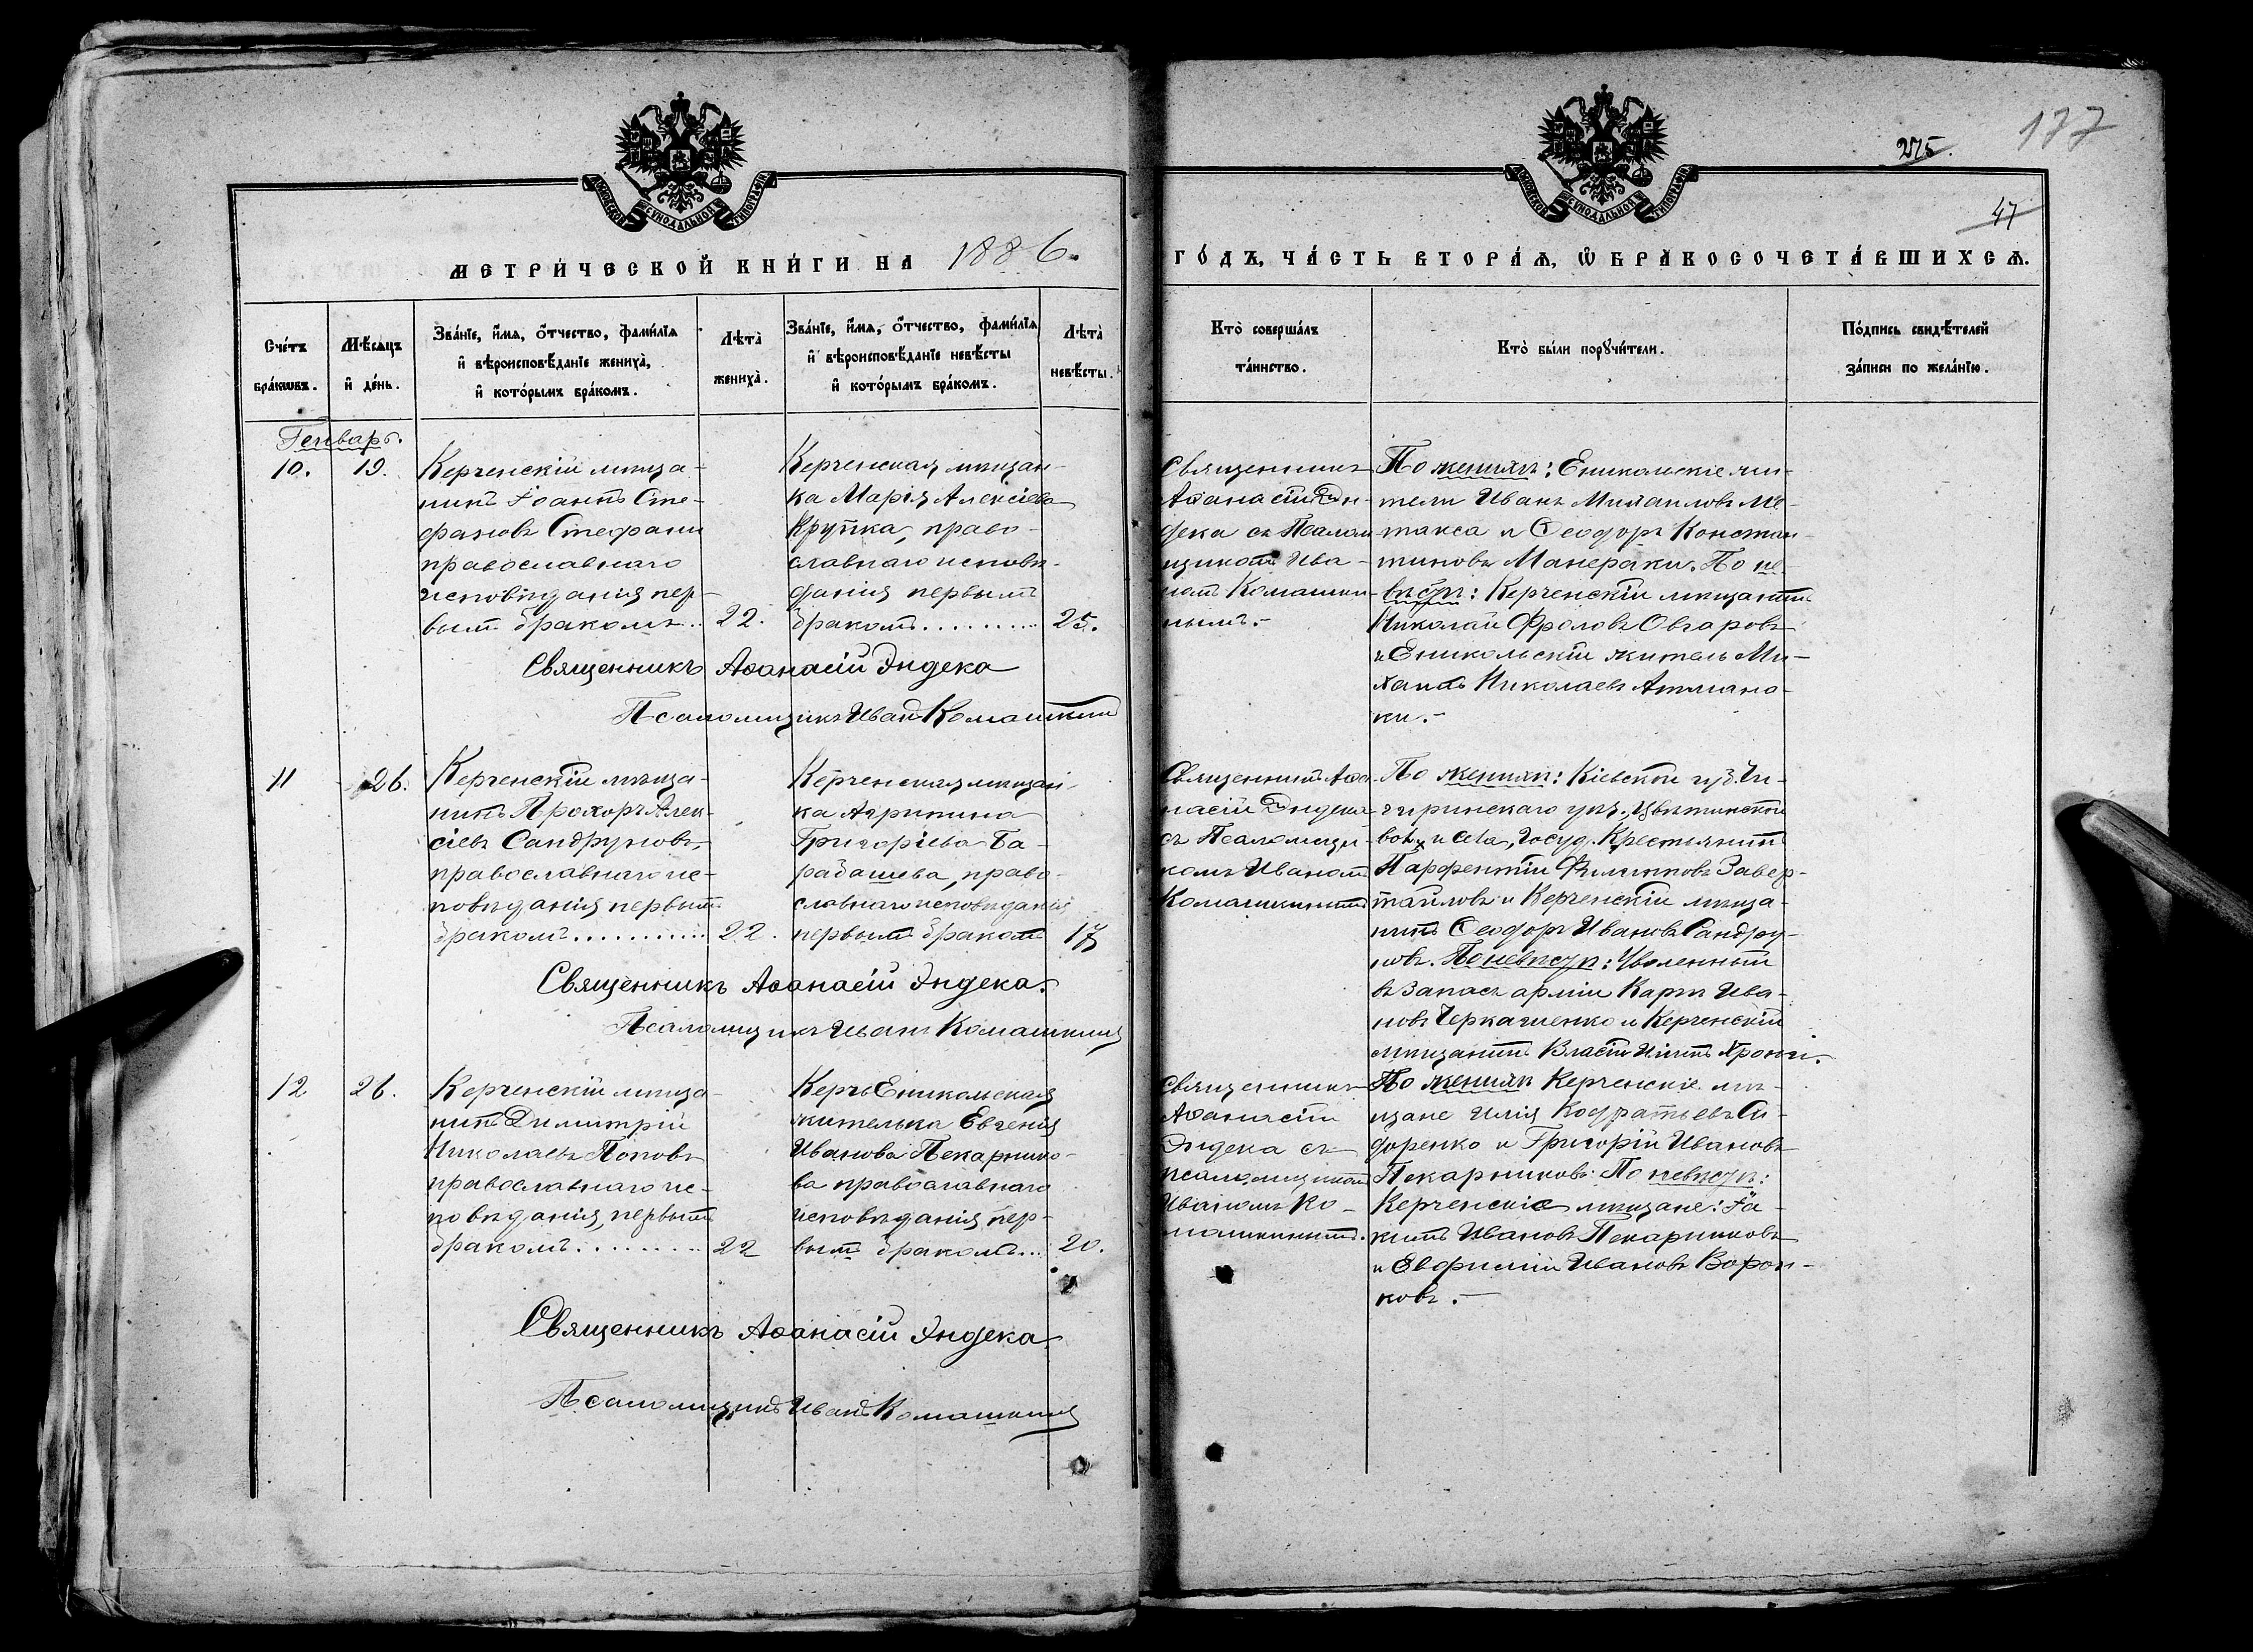 177
275.
47
МОСКОВСКОЙ СѴНОДАЛЬНОЙ ТИПОГРАФІИ
МОСКОВСКОЙ СѴНОДАЛЬНОЙ ТИПОГРАФІИ
МЕТРИ́ЧЕСКОЙ КНИ́ГИ НА 1886.
ГО́ДЪ, ЧА́СТЬ ВТОРА́Ѧ, Ѡ҆ БРАКОСОЧЕТА́ВШИХСѦ.
Сче́тъ
бра́кѡвъ.
Мѣ́сяцъ
и҆ де́нь.
Зва́нїе, и҆́мѧ, о҆́тчество, фами́лїѧ
и҆ вѣроисповѣ́данїе жениха̀,
и҆ кото́рымъ бра́комъ.
Лѣта̀
жениха̀.
Зва́нїе, и҆́мѧ, о҆́тчество, фами́лїѧ
и҆ вѣроисповѣ́данїе невѣ́сты
и҆ кото́рымъ бра́комъ.
Лѣта̀
невѣ́сты.
Кто̀ соверша́лъ
та́инство.
Кто̀ бы́ли порꙋчи́тели.
По́дпись свидѣ́телей
за́писи по жела́нїю.
Генварь.
10.
19.
Керченскій мѣща-
нинъ Іоаннъ Сте-
фановъ Стефани
православнаго
исповѣданія пер-
вымъ бракомъ..
22.
Керченская мѣщан-
ка Марія Алексіева
Крупка, право-
славнаго исповѣ-
данія первымъ
бракомъ.........
25.
Священникъ
Аѳанасій Эн-
дека съ Псалом-
щикомъ Ива-
номъ Комашки-
нымъ.-
По женихѣ: Еникольскіе жи-
тели Иванъ Михаиловъ Ме-
такса и Ѳеодоръ Констан-
тиновъ Манераки. По не-
вѣстѣ: Керченскій мѣщанинъ
Николай Фроловъ Овчаровъ
и Еникольскій житель Ми-
хаилъ Николаевъ Атмано-
ки.-
Священникъ Аѳанасій Эндека
Псаломщикъ Иванъ Комашкинъ
11
26.
Керченскій мѣща-
нинъ Прохоръ Алек-
сіевъ Сандруковъ,
православнаго ис-
повѣданія первымъ
бракомъ...........
22.
Керченская мѣщан-
ка Агрипина
Григоріева Ба-
рабашева, право-
славнаго исповѣданія
первымъ бракомъ
17
Священникъ Аѳа-
насій Эндека
съ Псаломщи-
комъ Иваномъ
Комашкинымъ
По женихѣ: Кіевской губ. Чи-
гиринскаго уѣз. Цвѣтинской
вол. и села, Госуд. Крестьянинъ
Парфентій Филиповъ Завер-
тайловъ и Керченскій мѣща-
нинъ Ѳеодоръ Ивановъ Сандру-
ковъ. По невѣстѣ: Уволенный
въ запасъ арміи Карпъ Ива-
новъ Черкашенко и Керченскій
мѣщанинъ Власій Ильинъ
Священникъ Аѳанасій Эндека.
Псаломщикъ Иванъ Комашкинъ
12
26.
Керченскій мѣща-
нинъ Димитрій
Николаевъ Поповъ
православнаго ис-
повѣданія, первымъ
бракомъ.........
22
КерчьЕникольская
жителька Евгенія
Иванова Пекарнико-
ва православнаго
исповѣданія пер-
вымъ бракомъ...
20.
Священникъ
Аѳанасій
Эндека съ
псаломщикомъ
Иваномъ Ко-
машкинымъ.
По женихѣ Керченскіе мѣ-
щане Илія Кодратьевъ Си-
доренко и Григорій Ивановъ
Пекарниковъ. По невѣстѣ:
Керченскіе мѣщане: Іа-
кимъ Ивановъ Пекарниковъ
и Евфимій Ивановъ Ворон-
ковъ.-
Священникъ Аѳанасій Эндека.
Псаломщикъ Иванъ Комашкинъ